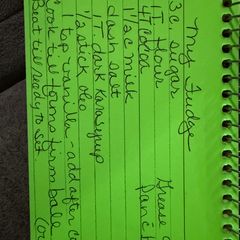 My Fudge
3c. sugar
1T flour
4T cocoa
1 1/2c milk
dash salt
1T. dark Karo syrup
1/2 stick oleo
1 tsp. vanilla - add after
Cook till forms firm ball
Beat till ready to set.
Grease
Pan